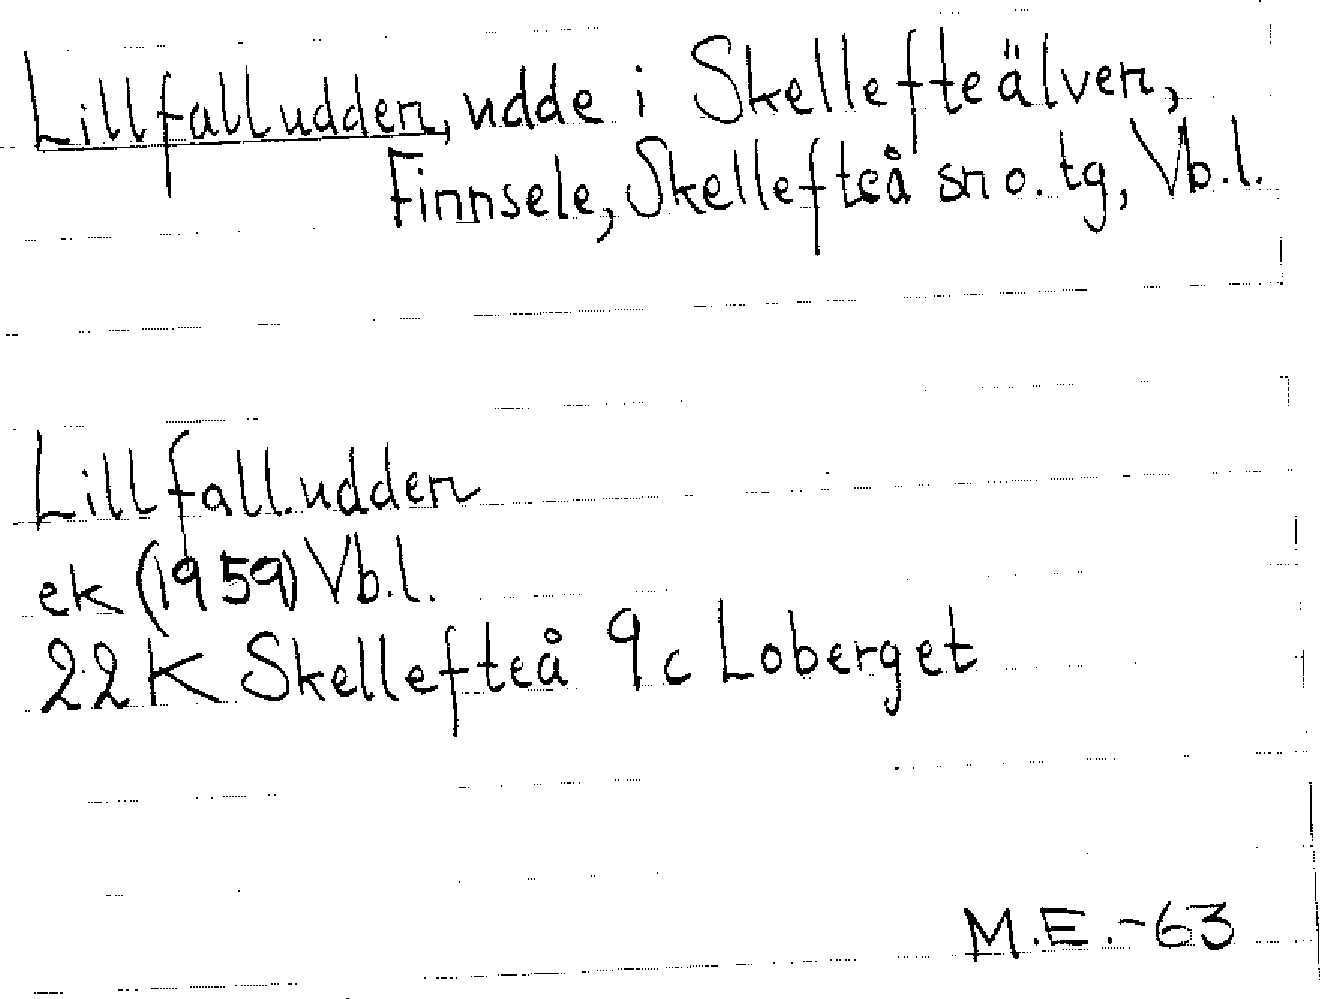 Lillfalludden, udde i Skellefteälven,
Finnsele, Skellefteå sn o. tg, Vb.l.
Lillfalludden
ek (1959) Vb.l.
22K Skellefteå 9c Loberget
M.E.-63